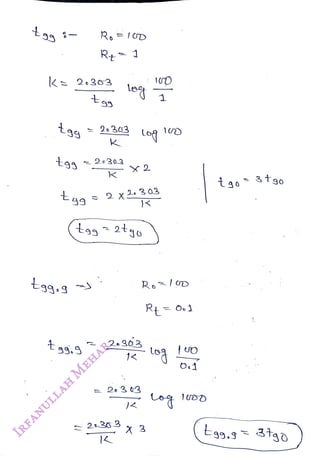 t99 :- R₀ = 100
Rt = 1
K = 2.303/t99 log 100/1
t99 = 2.303/K log 100
t99 = 2.303/K × 2
t99 = 2 × 2.303/K
t90 = 3t90
t99 = 2t90
t99.9 → R₀ = 100
Rt = 0.1
t99.9 = 2.303/K log 100/0.1
= 2.303/K log 1000
= 2.303/K × 3
t99.9 = 3t90
IRFANULLAH MEHAR